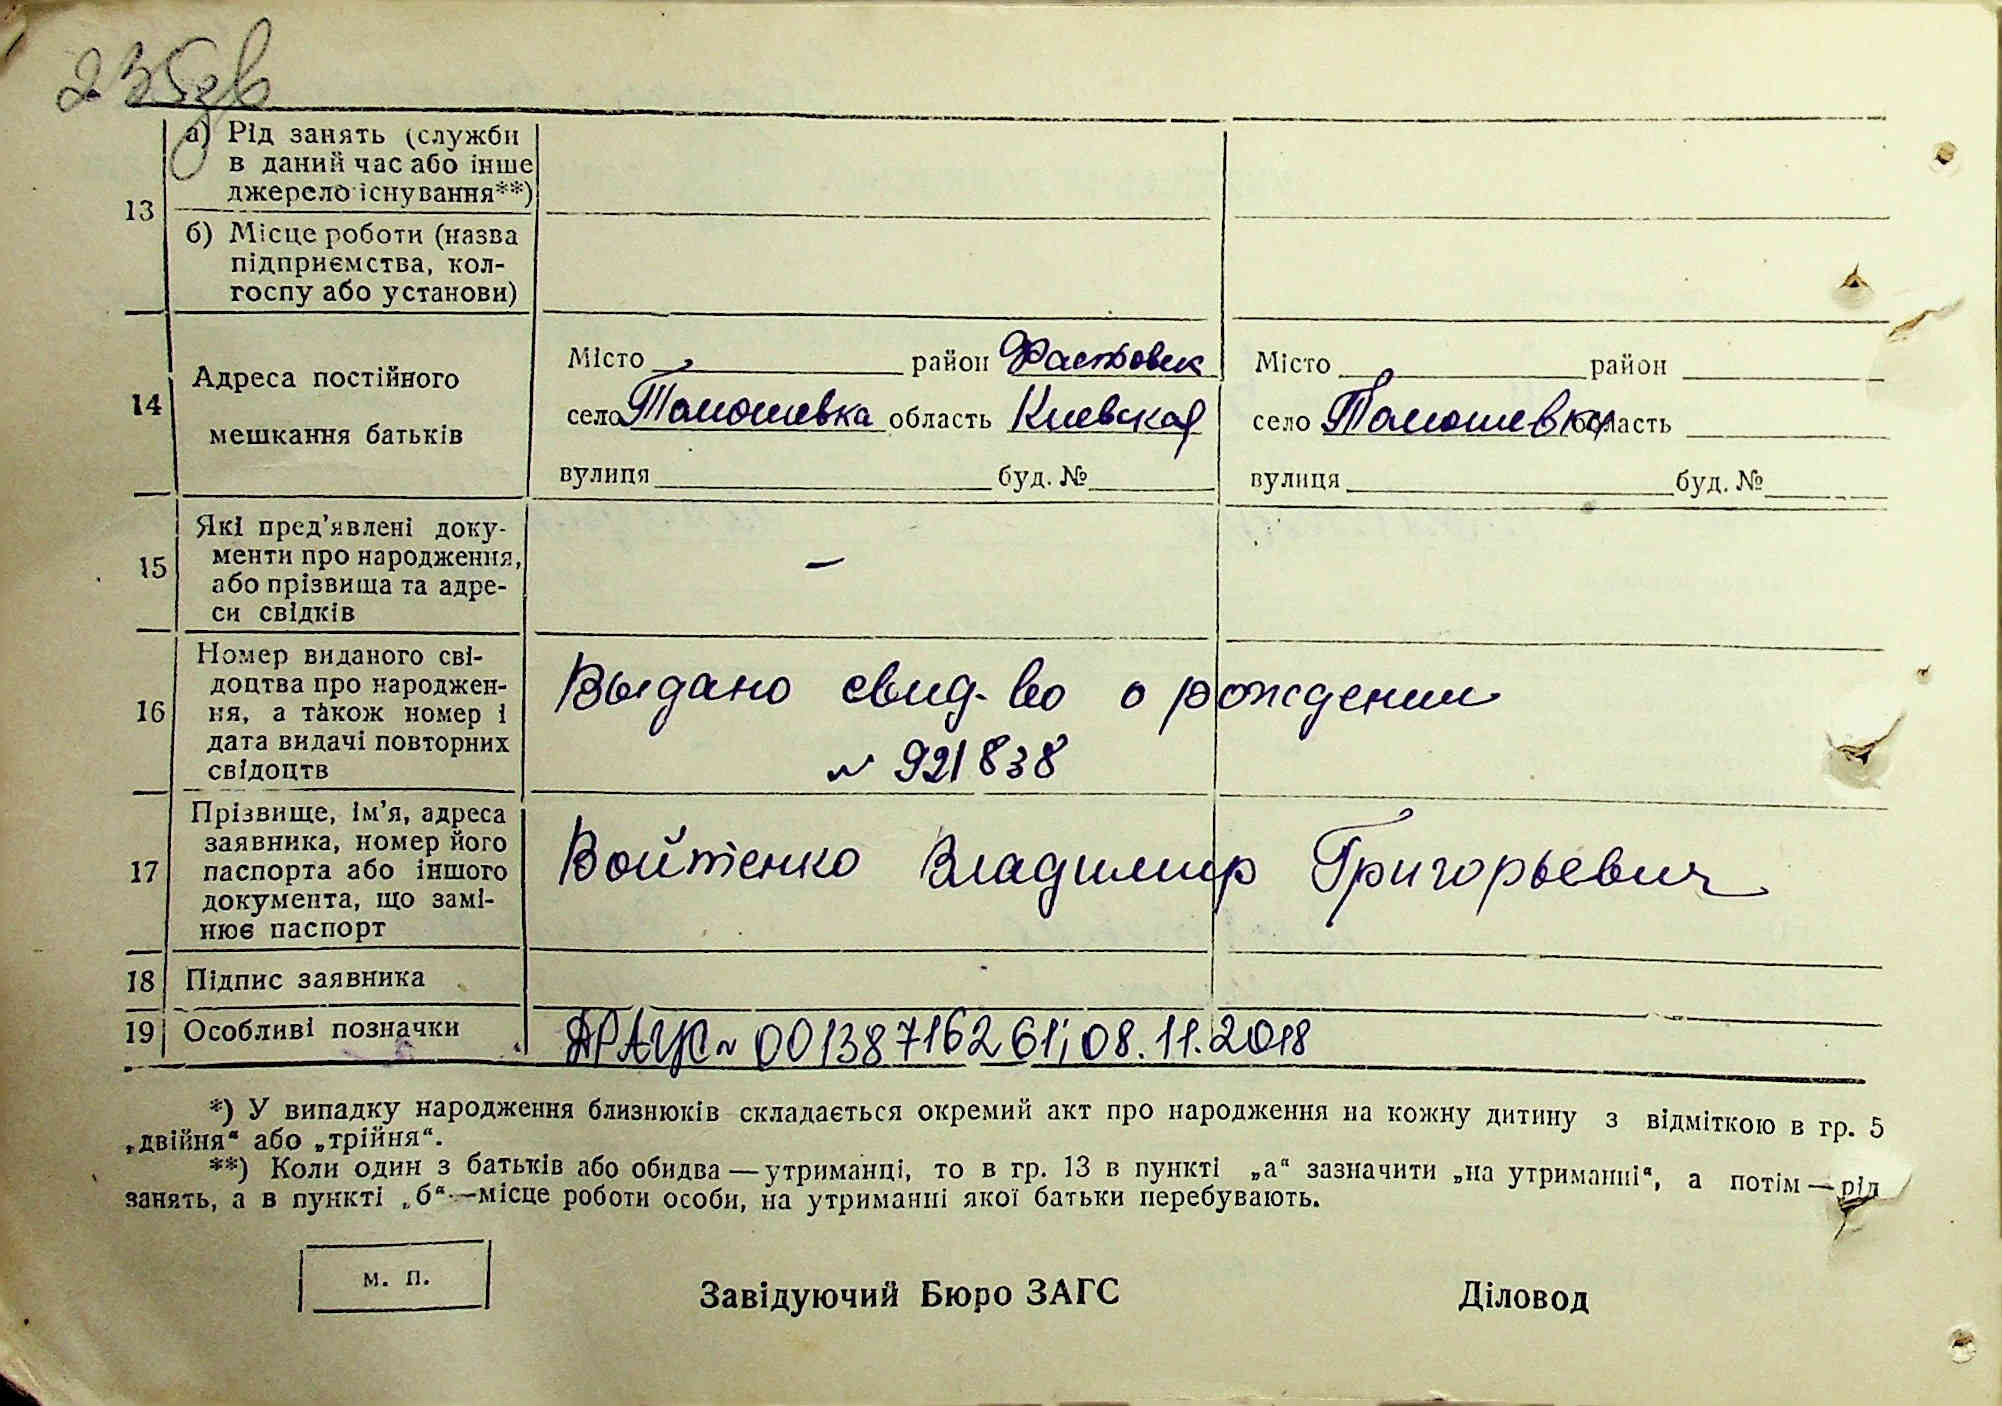 235зв
13
а) Рід занять (служби
в даний час або інше
джерело існування**)
б) Місце роботи (назва
підприємства, кол-
госпу або установи)
14
Адреса постійного
мешкання батьків
Місто район Фастовск
село Томошевка область Киевская
вулиця буд. №
Місто район
село Томошевка область
вулиця буд. №
15
Які пред’явлені доку-
менти про народження,
або прізвища та адре-
си свідків
–
16
Номер виданого сві-
доцтва про народжен-
ня, а також номер і
дата видачі повторних
свідоцтв
Выдано свид-во о рождении
№ 921838
17
Прізвище, ім’я, адреса
заявника, номер його
паспорта або іншого
документа, що замі-
нює паспорт
Войтенко Владимир Григорьевич
18 Підпис заявника
19 Особливі позначки
ДРАЦС № 00138716261; 08.11.2018
*) У випадку народження близнюків складається окремий акт про народження на кожну дитину з відміткою в гр. 5
„двійня“ або „трійня“.
**) Коли один з батьків або обидва — утриманці, то в гр. 13 в пункті „а“ зазначити „на утриманні“, а потім — рід
занять, а в пункті „б“ — місце роботи особи, на утриманні якої батьки перебувають.
м. п.
Завідуючий Бюро ЗАГС
Діловод